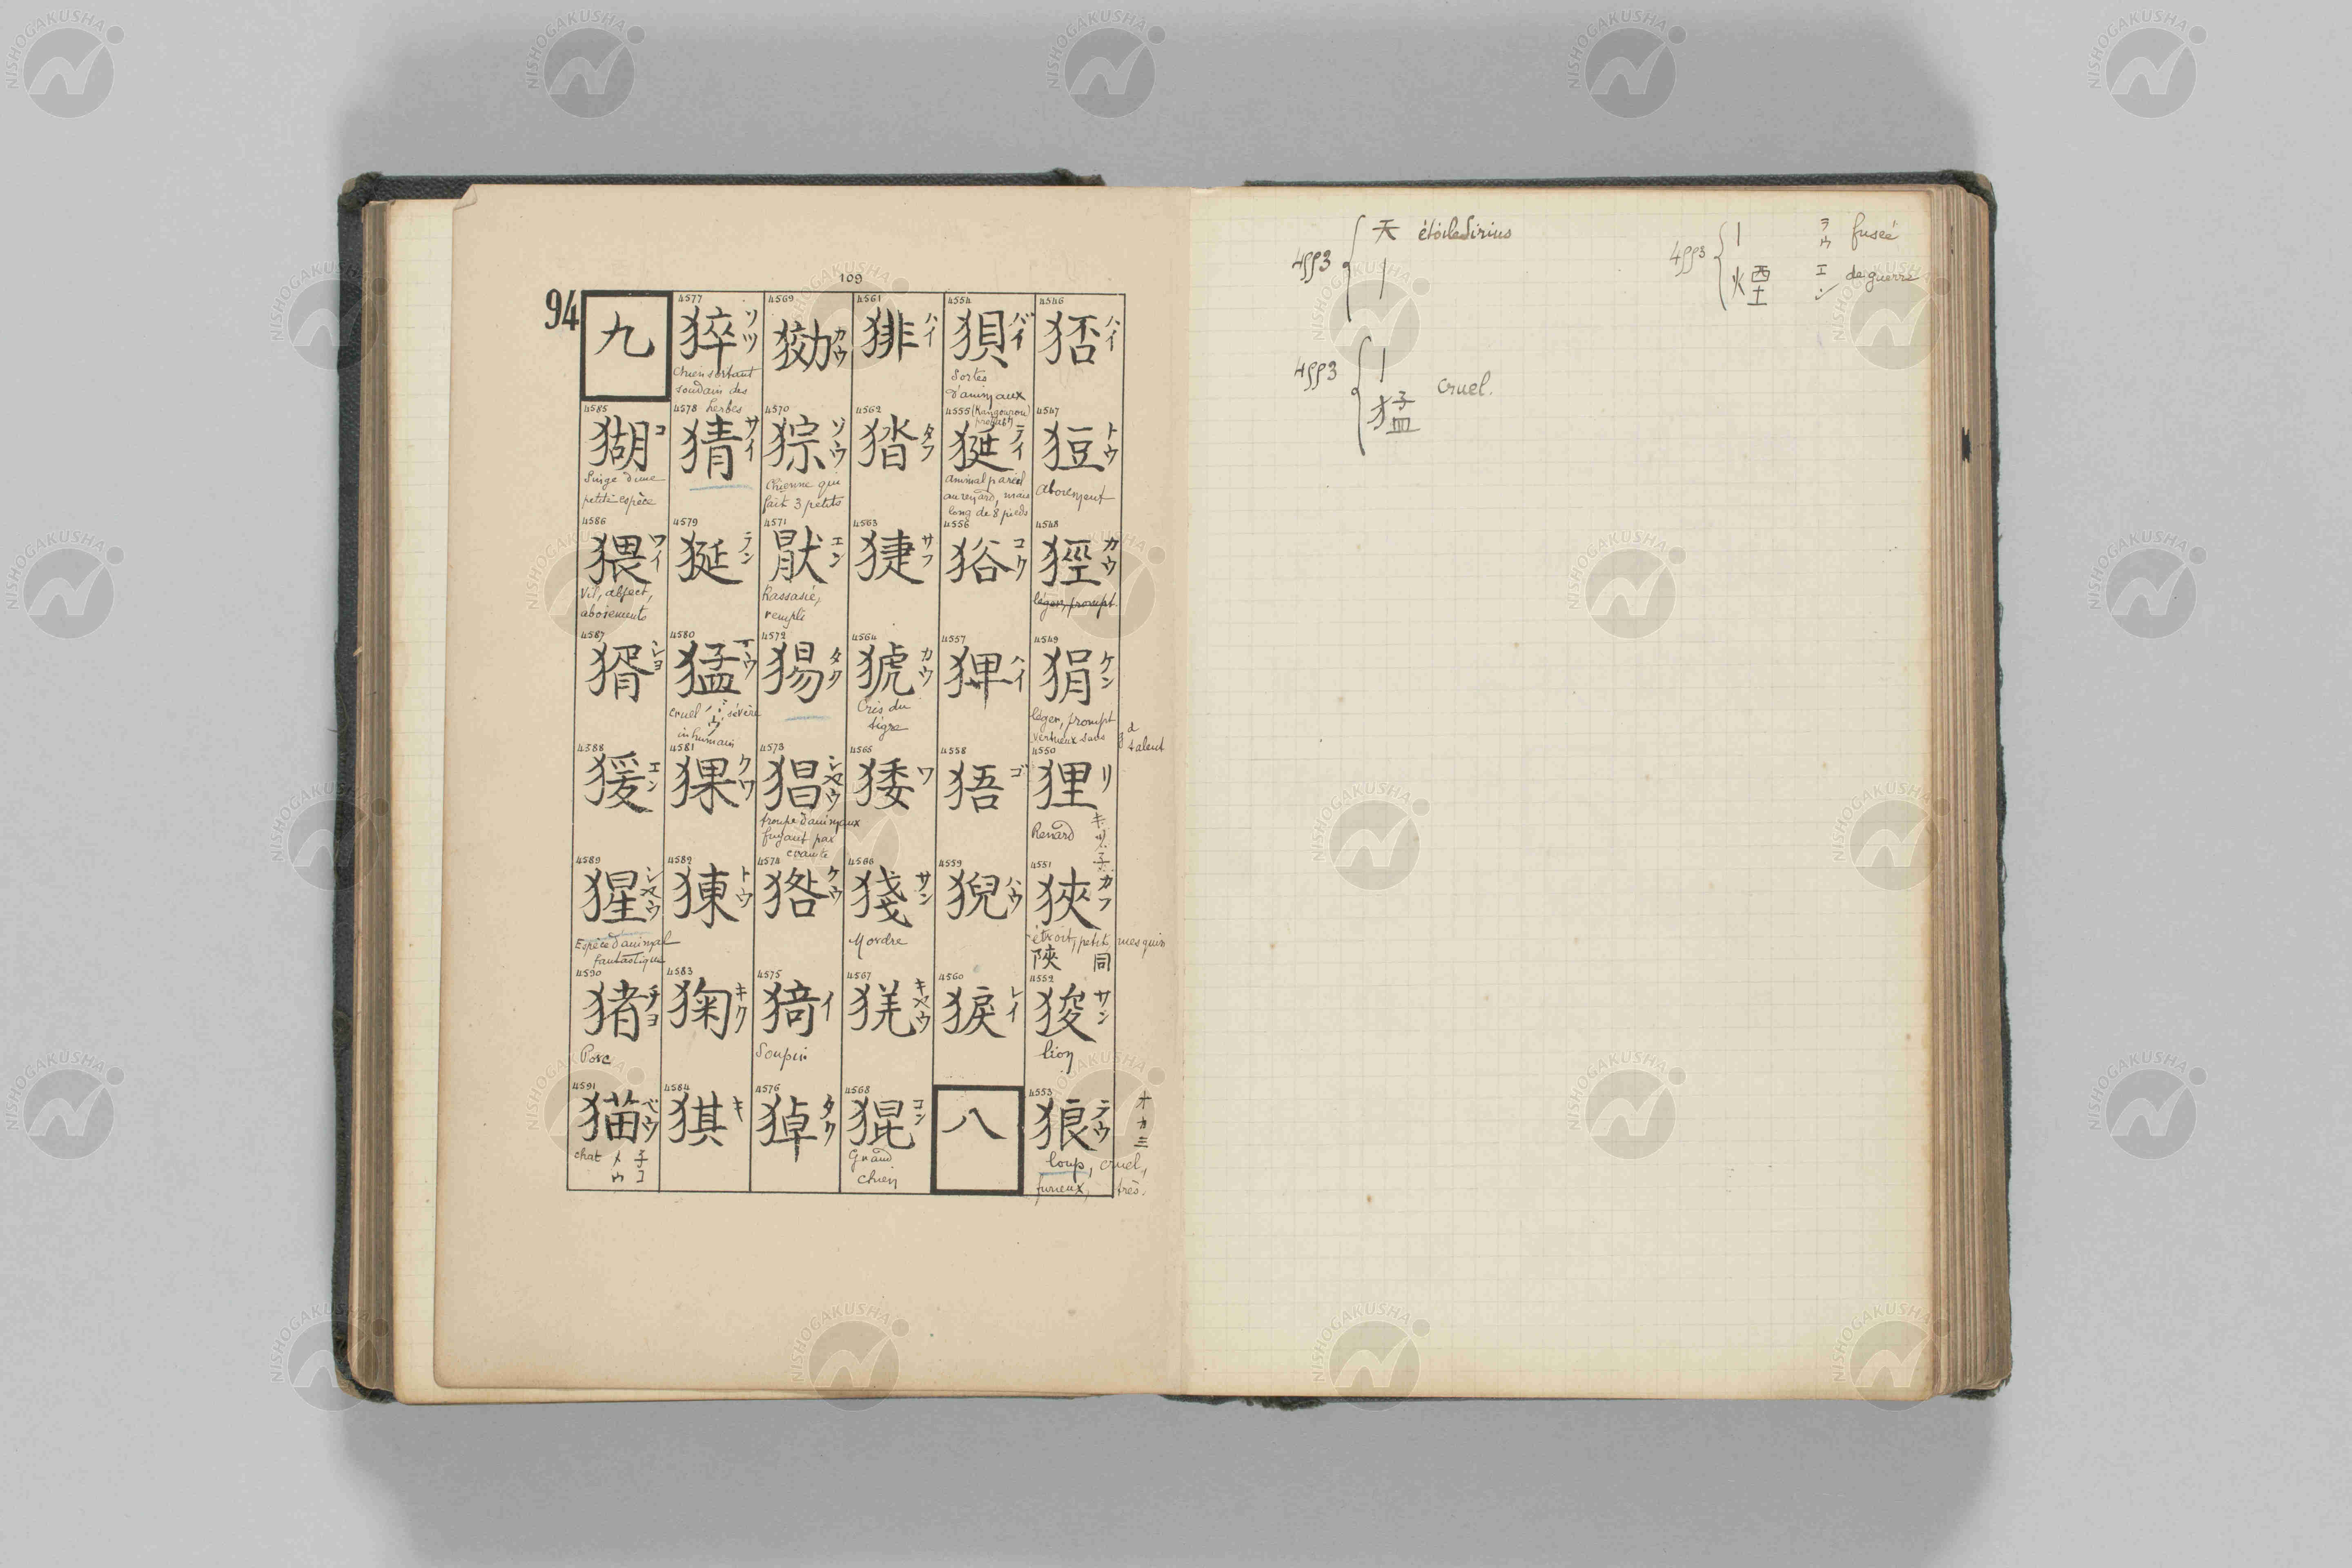 109
94
4546 狜 ハイ
4547 狟 トウ
Aboiement
4548 狌 カウ
léger, prompt
4549 狷 ケン
léger, prompt
vertueux sans gd talent
4550 狸 リ
Renard キツネ
4551 狹 カフ
étroit, petit, mesquin
陜 同
4552 狻 サン
lion
4553 狼 ラウ オカミ
loup, cruel,
furieux, très.
4554 狽 バイ
Sortes
d'animaux
(Kangourou)
4555 狿 テイ
animal pareil
au renard, mais
long de 8 pieds
4556 狢 コク
4557 猈 ハイ
4558 㹳 ゴ
4559 猊 ハウ
4560 猤 レイ
八
4561 猅 ハイ
4562 猹 タフ
4563 㨗 サフ
4564 猇 カウ
Cris du
tigre
4565 猗 ワ
4566 猭 サン
Mordre
4567 羌 キヤウ
4568 猑 コン
Grand
chien
4569 㺒 カウ
4570 猔 ソウ
Chienne qui
fait 3 petits
4571 猒 エン
Rassasié,
rempli
4572 猲 タク
4573 猖 シヤウ
troupe d'animaux
fuyant par
crainte
4574 㹱 ケウ
4575 猗 イ
Soupir
4576 猂 タク
4577 猝 ソツ
Chien sortant
soudain des
herbes
4578 猜 サイ
4579 狿 テン
4580 猛
cruel, sévère
inhumain
4581 猓 クワ
4582 㹿 トウ
4583 㹼 キク
4584 猉 キ
九
4585 猢 コ
Singe d'une
petite espèce
4586 猥 ワイ
Vil, abject,
aboiements
4587 猯 シヨ
4388 猨 エン
4589 猩 シヤウ
Espèce d'animal
fantastique
4590 猪 チヨ
Porc
4591 猫 ベウ
chat メウ 子コ
4553 天 étoile Sirius
4553 猛 cruel.
4553 煙 ラウ エン fusée
de guerre